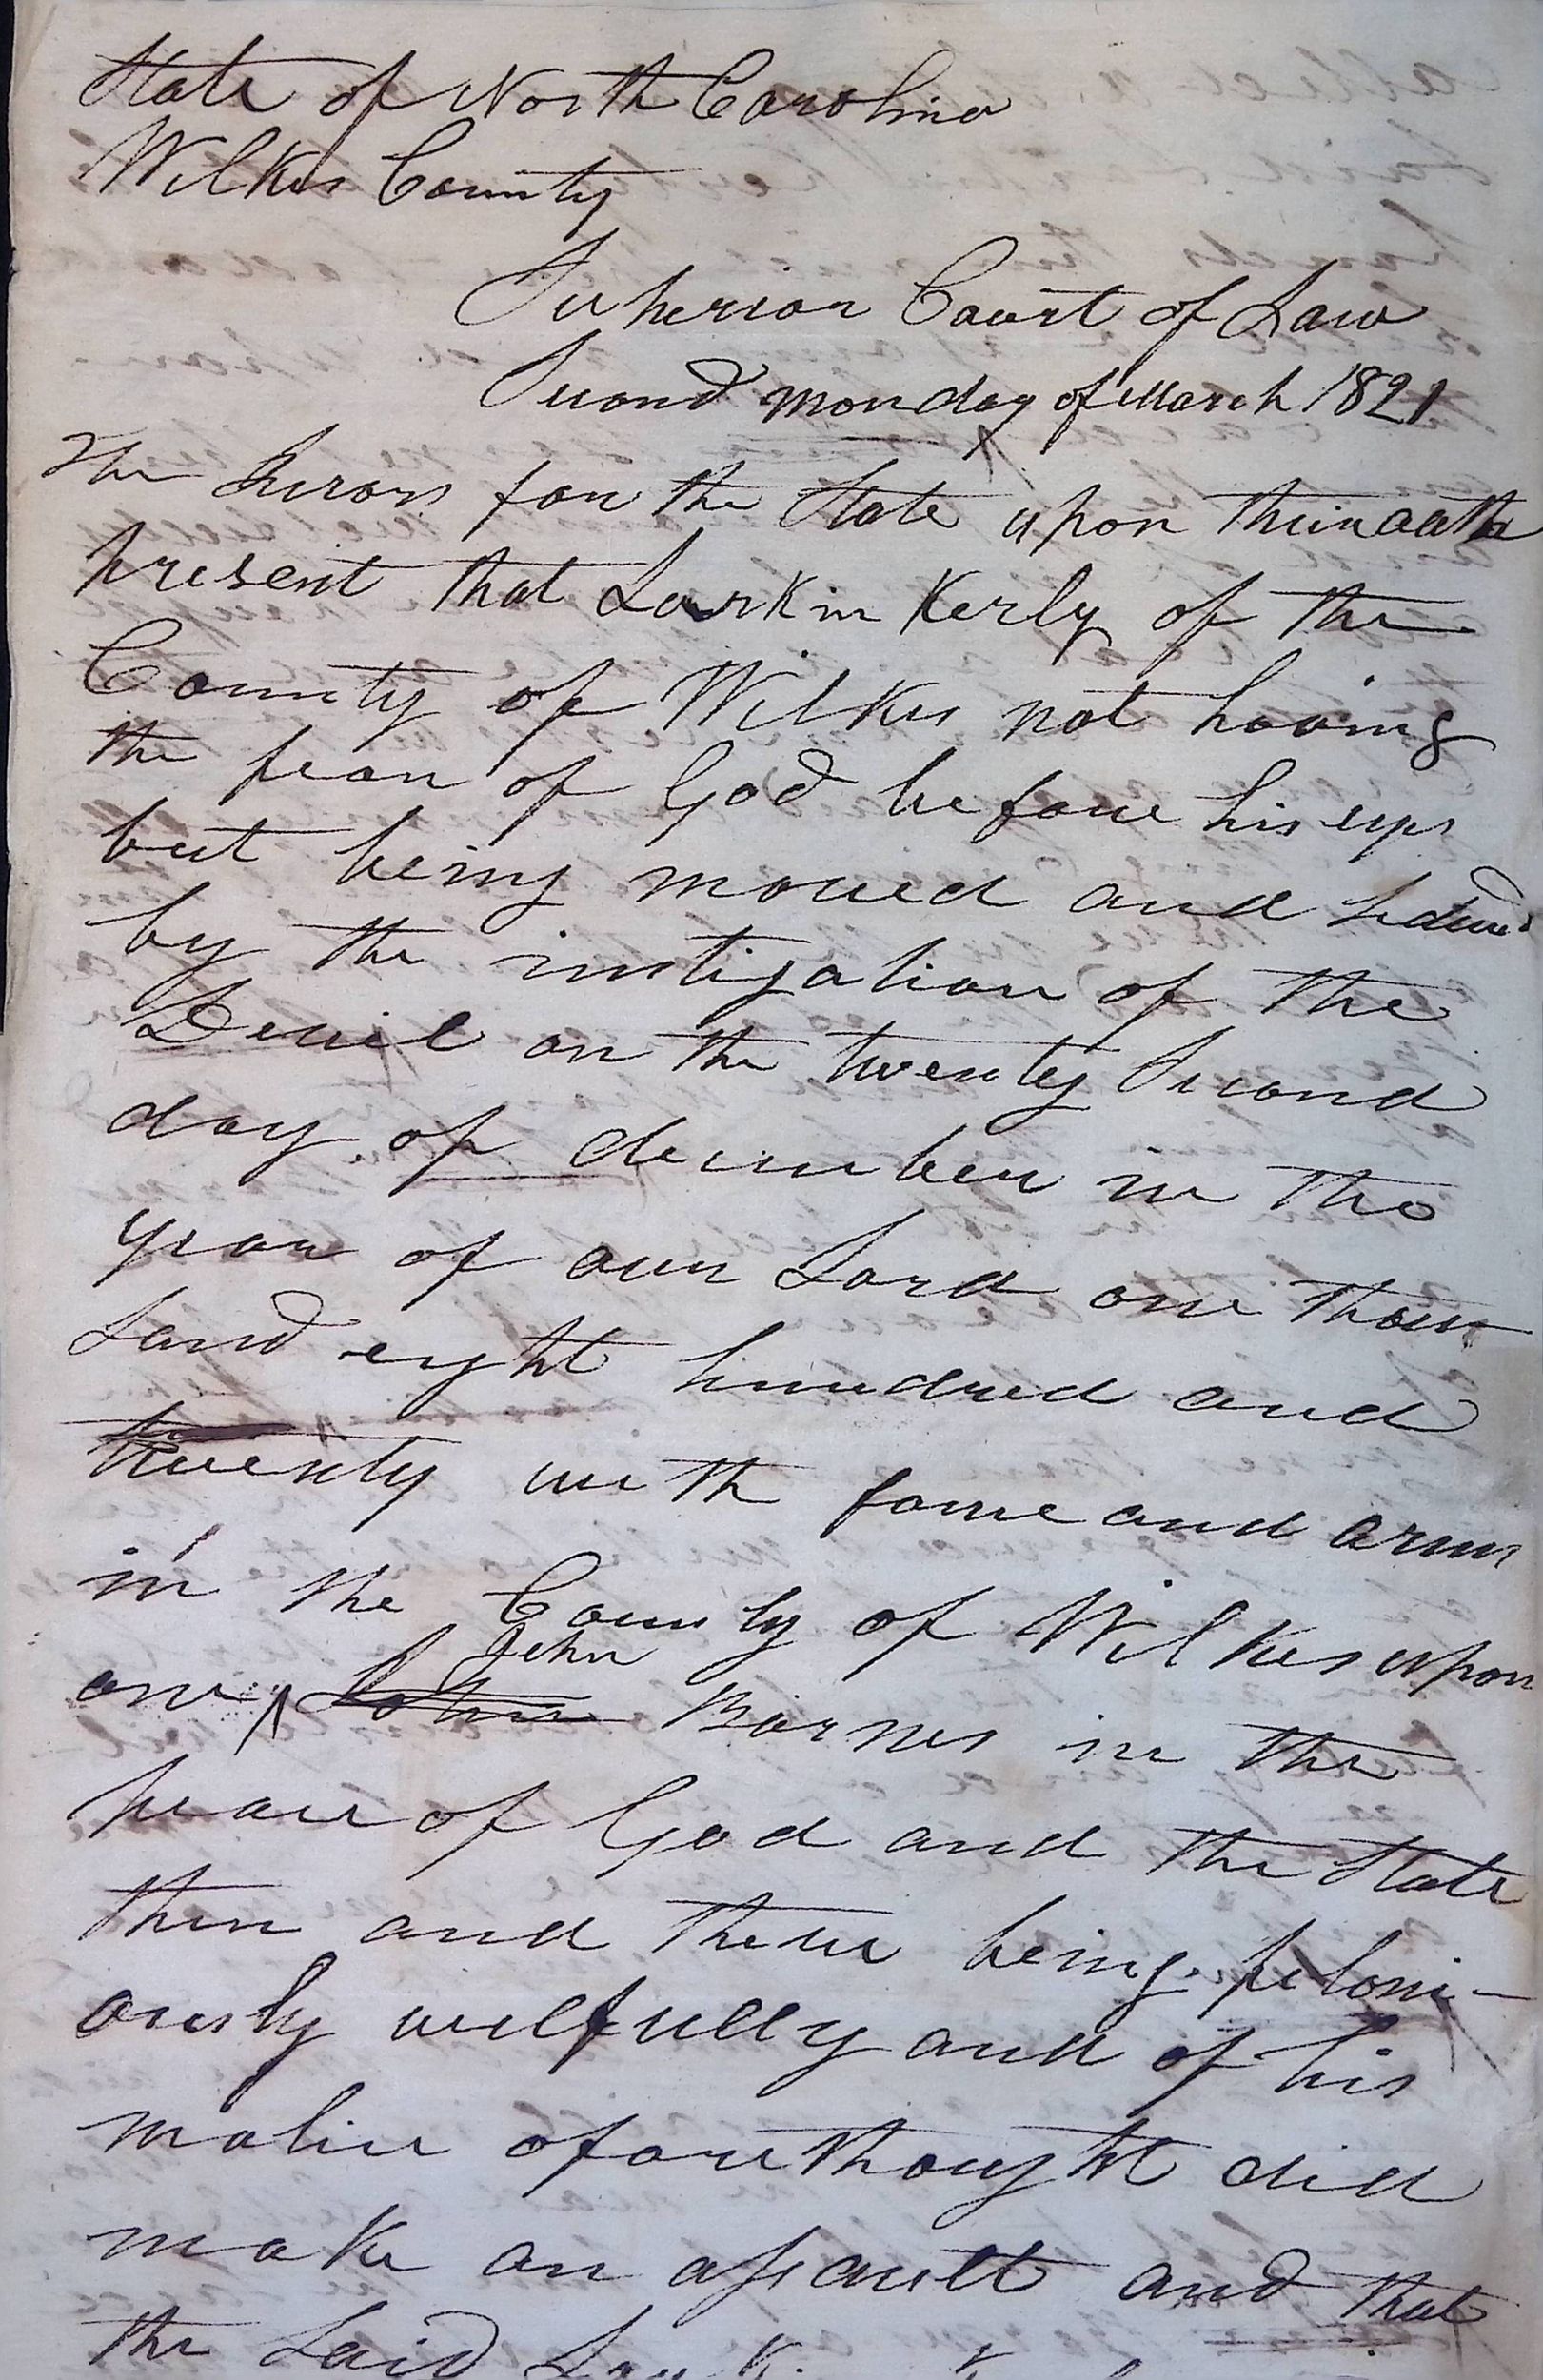 State of North Carolina
Wilkes County
Superior Court of Law
Second monday of March 1821
The Jurors for the State upon their oath
present that Larkin Kerly of the
County of Wilkes not having
the fear of God before his eyes
but being moved and seduced
by the instigation of the
Devil on the twenty Second
day of december in the
year of our Lord one thou
sand eight hundred and
twenty with force and arms
in the County of Wilkes upon
John
one ^ John Barnes in the
peace of God and the State
then and there being feloni-
ously wilfully and of his
malice aforethought did
make an assault and that
the Said Larkin